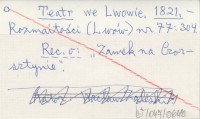 Teatr we Lwowie, 1821, -
Rozmaitości (Lwów) nr 77: 304
Rec. o: "Zamek na Czor-
sztynie".